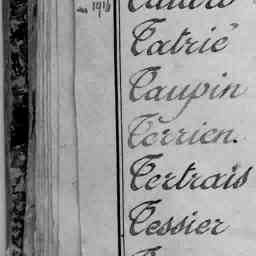 1916
Tatrie
Taupin
Terrien.
Tertrais
Tessier